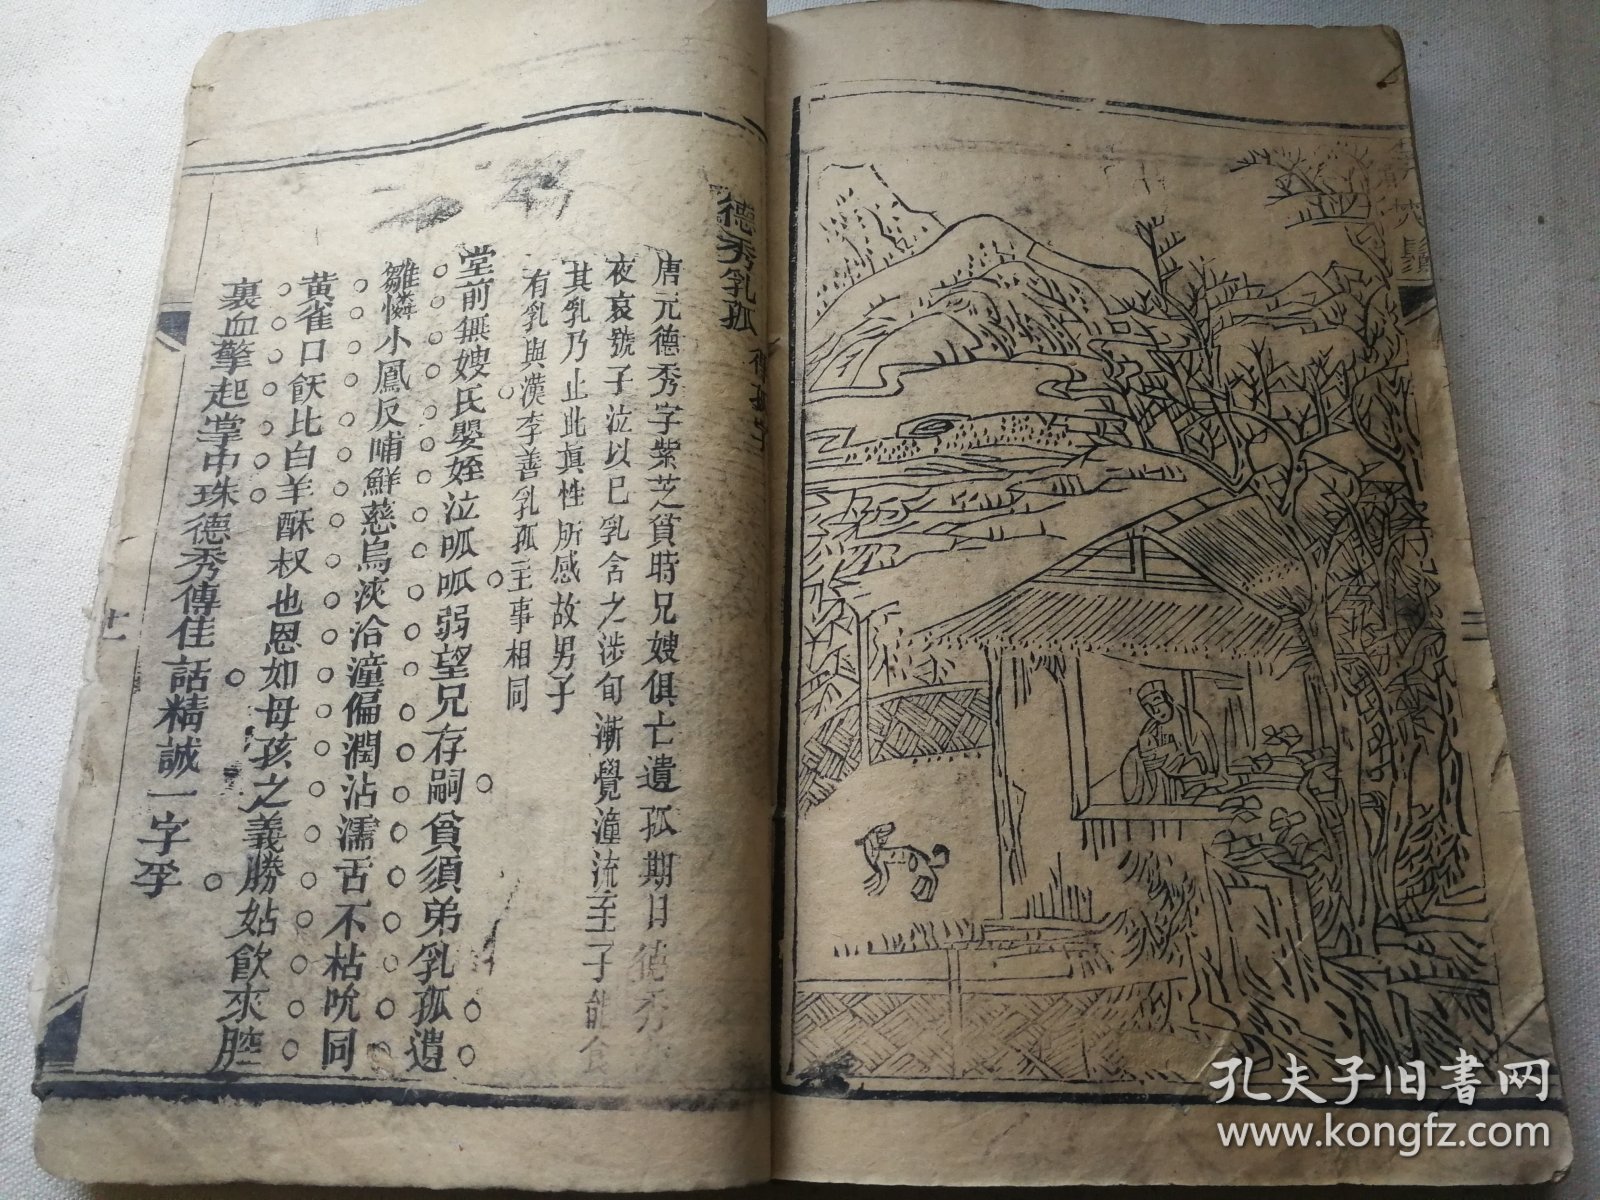 德秀乳孤
得孤字
唐元德秀字紫芝貧時兄嫂俱亡遺孤期日德秀
夜哀號子泣以已乳含之涉旬漸覺湩流至子能食
其乳乃止此真性所感故男子
有乳與漢李善乳孤主事相同
堂前無嫂氏嬰姪泣呱呱弱望兄存嗣貧須弟乳孤遺
雛憐小鳳反哺鮮慈烏浹洽湩偏潤沾濡舌不枯吮同
黄雀口飫比白羊酥叔也恩如母孩之義勝姑飲來腔
裏血擎起掌中珠德秀傳佳話精誠一字孚
十一
孔夫子旧書网
www.kongfz.com